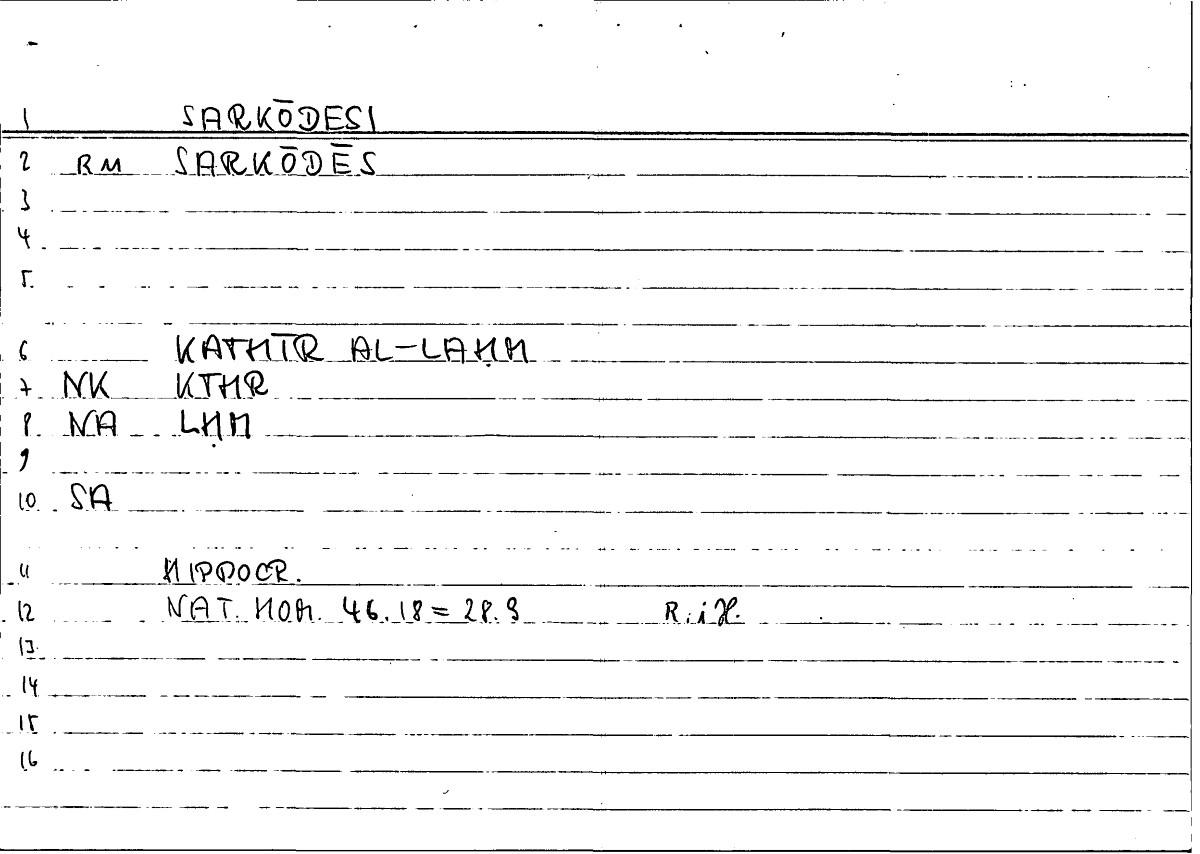 1 SARKŌDESI
2 RM SARKŌDĒS
3
4
5.
6 KATHĪR AL-LAḤM
7 NK KTHR
8. NA LḤM
9
10. SA
11 HIPPOCR.
12 NAT. HOM. 46.18 = 28.9
13.
14
15
16